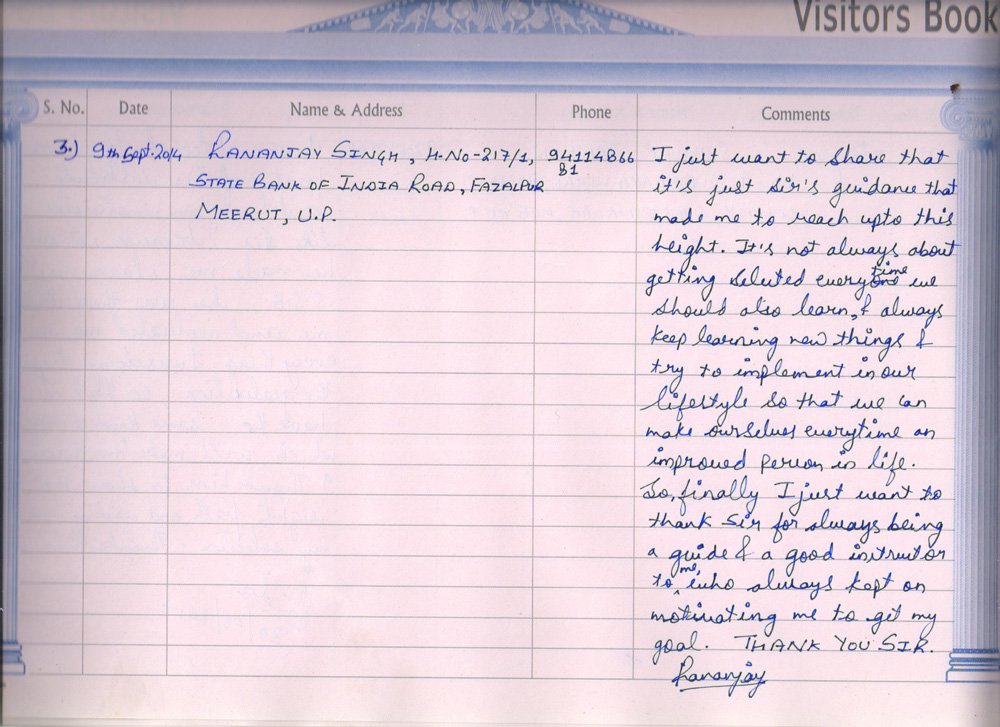 Visitors Book
S. No. Date Name & Address Phone Comments
3.) 9th Sept. 2014 RANANJAY SINGH, H-NO-217/1, 94114866
81
STATE BANK OF INDIA ROAD, FAZALPUR
MEERUT, U.P.
I just want to share that
it's just sir's guidance that
made me to reach upto this
height. It's not always about
getting seluted everytime we
should also learn, & always
keep learning new things &
try to implement in our
lifestyle so that we can
make ourselves everytime an
improved person in life.
So, finally I just want to
thank Sir for always being
a guide & a good instructor
to me, who always kept on
motivating me to get my
goal. THANK YOU SIR.
Rananjay